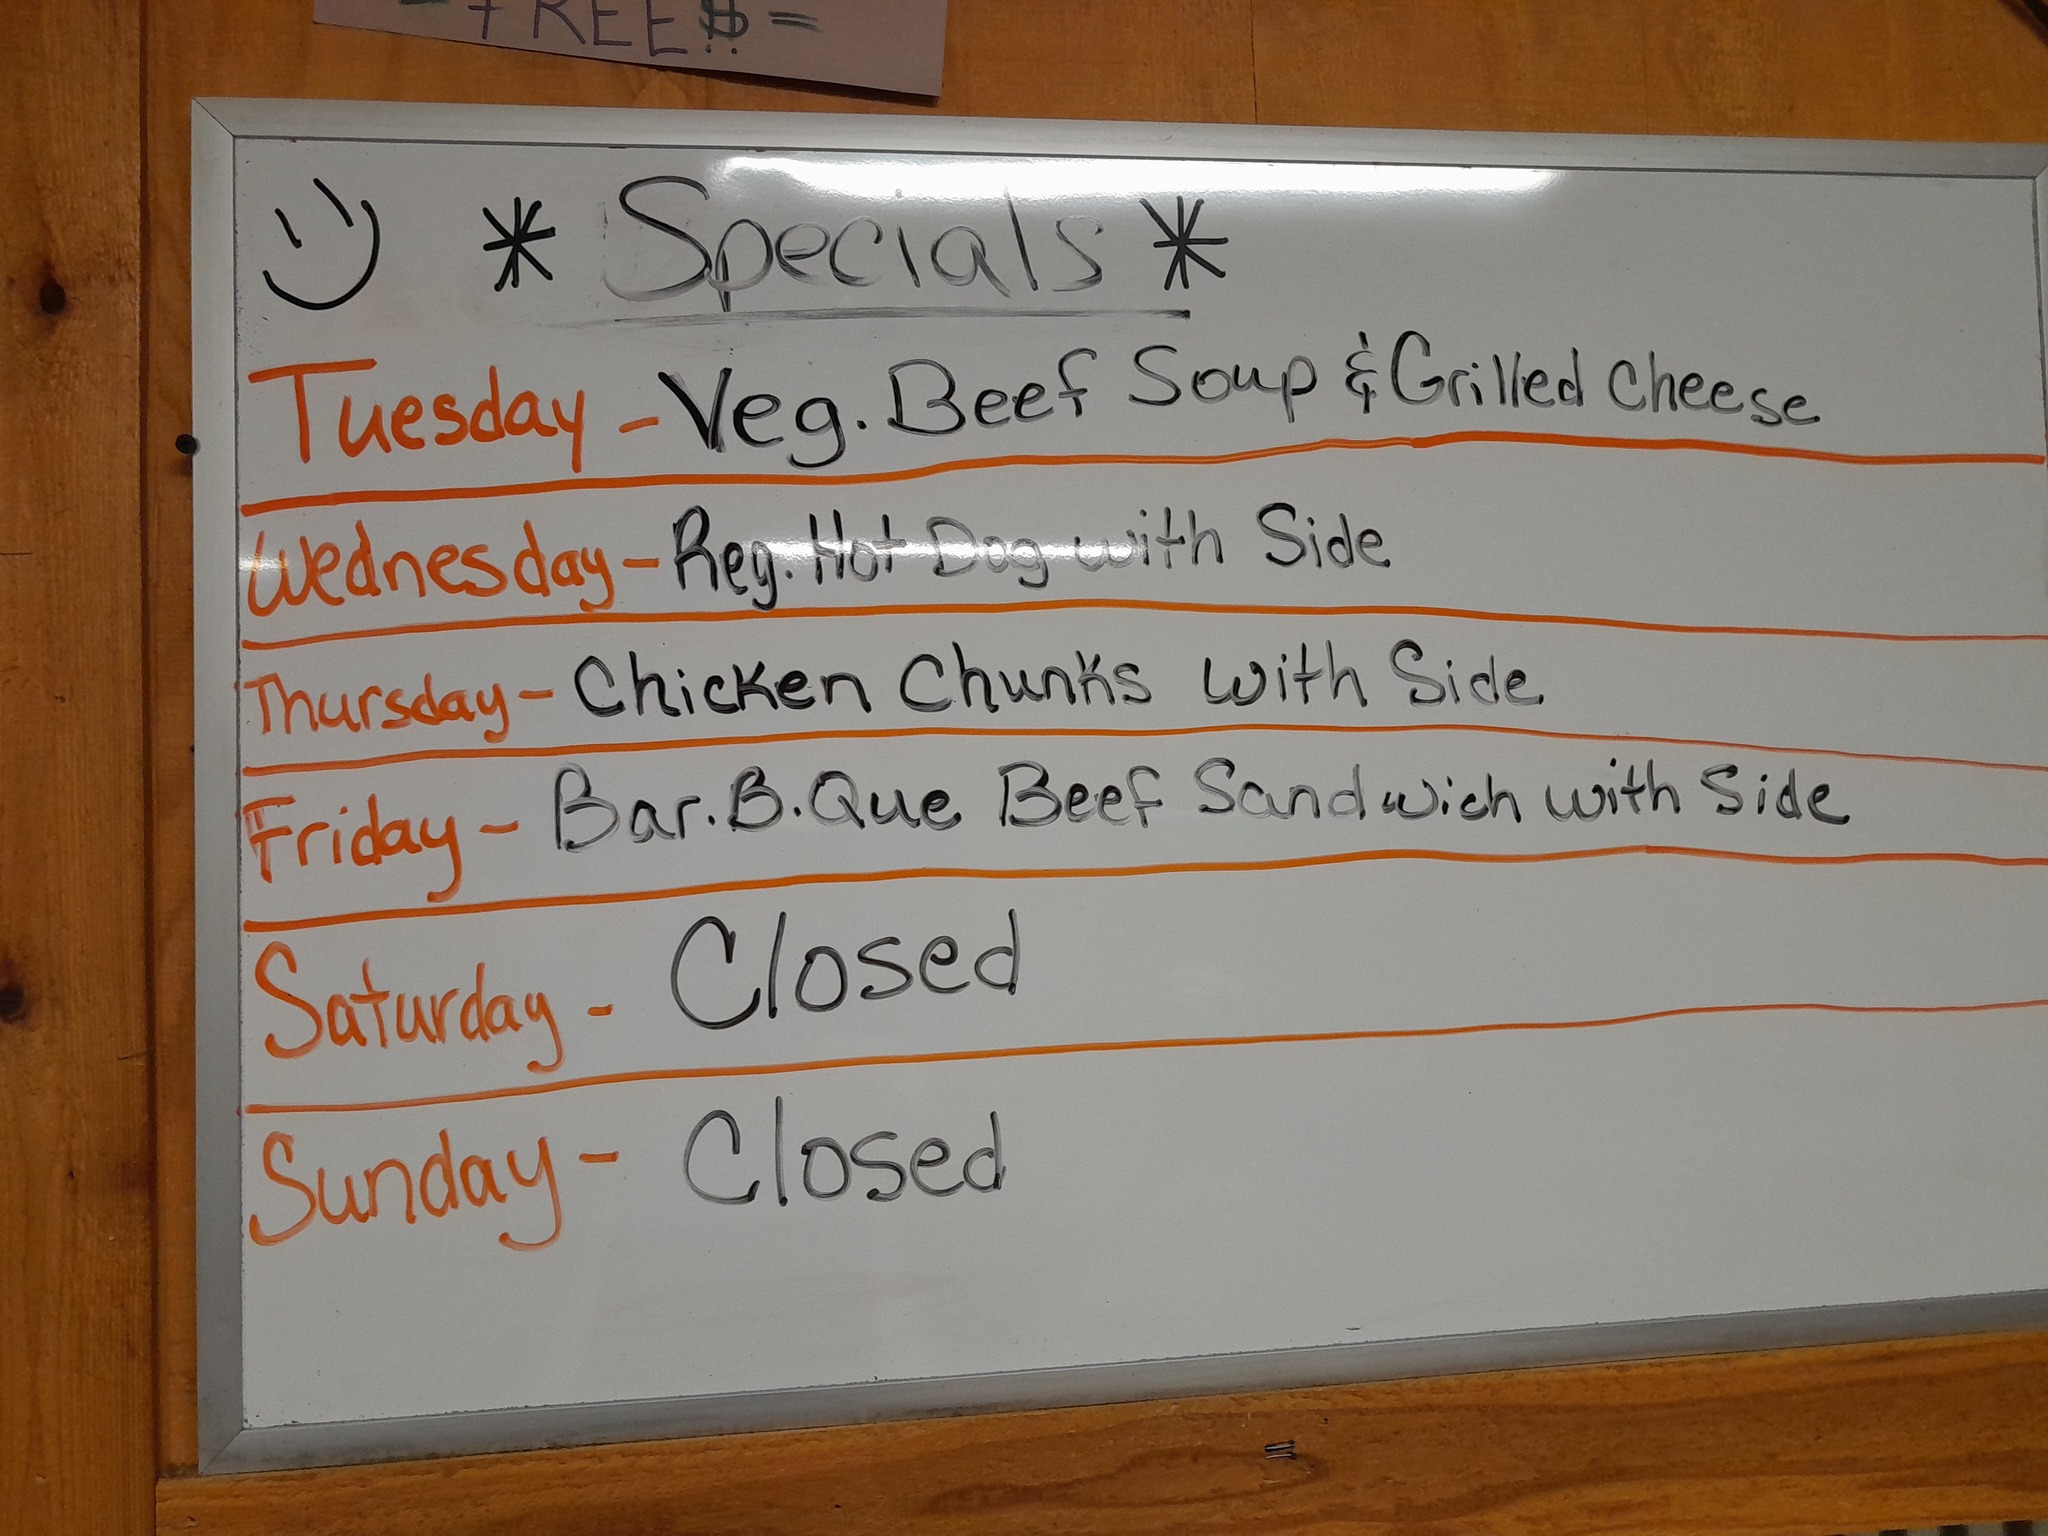 FREE$ =
* Specials *
Tuesday - Veg. Beef Soup & Grilled Cheese
Wednesday - Reg. Hot Dog with Side
Thursday - Chicken Chunks with Side
Friday - Bar.B.Que Beef Sandwich with Side
Saturday - Closed
Sunday - Closed